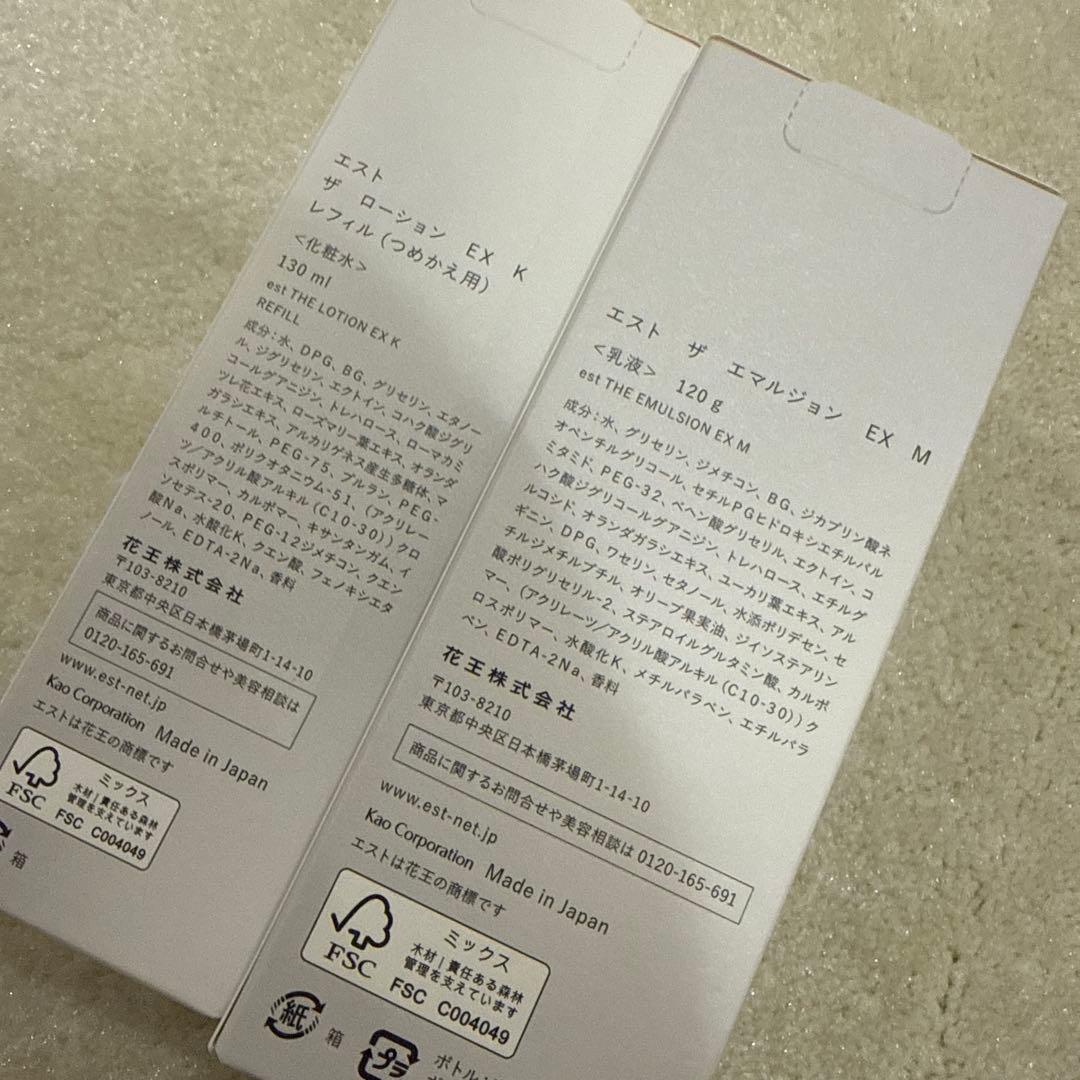 エスト
ザ ローション EX K
レフィル(つめかえ用)
<化粧水>
130 ml
est THE LOTION EX K
REFILL
成分:水、DPG、BG、グリセリン、エタノー
ル、ジグリセリン、エクトイン、コハク酸ジグリ
コールグアニジン、トレハロース、ローマカミ
ツレ花エキス、ローズマリー葉エキス、オランダ
ガラシエキス、アルカリゲネス産生多糖体、マ
ルチトール、PEG-75、プルラン、PEG-
400、ポリクオタニウム-51、(アクリレー
ツ/アクリル酸アルキル(C10-30))クロ
スポリマー、カルボマー、キサンタンガム、イ
ソセテス-20、PEG-12ジメチコン、クエン
酸Na、水酸化K、クエン酸、フェノキシエタ
ノール、EDTA-2Na、香料
花王株式会社
〒103-8210
東京都中央区日本橋茅場町1-14-10
商品に関するお問合せや美容相談は
0120-165-691
www.est-net.jp
Kao Corporation Made in Japan
エストは花王の商標です
FSC
ミックス
木材|責任ある森林
管理を支えています
FSC C004049
箱
エスト ザ エマルジョン EX M
<乳液> 120 g
est THE EMULSION EX M
成分:水、グリセリン、ジメチコン、BG、ジカプリン酸ネ
オペンチルグリコール、セチルPGヒドロキシエチルパル
ミタミド、PEG-32、ベヘン酸グリセリル、エクトイン、コ
ハク酸ジグリコールグアニジン、トレハロース、エチルグ
ルコシド、オランダガラシエキス、ユーカリ葉エキス、アル
ギニン、DPG、ワセリン、セタノール、水添ポリデセン、セ
チルジメチルブチル、オリーブ果実油、ジイソステアリン
酸ポリグリセリル-2、ステアロイルグルタミン酸、カルボ
マー、(アクリレーツ/アクリル酸アルキル(C10-30))ク
ロスポリマー、水酸化K、メチルパラベン、エチルパラ
ベン、EDTA-2Na、香料
花王株式会社
〒103-8210
東京都中央区日本橋茅場町1-14-10
商品に関するお問合せや美容相談は 0120-165-691
www.est-net.jp
Kao Corporation Made in Japan
エストは花王の商標です
FSC
ミックス
木材|責任ある森林
管理を支えています
FSC C004049
紙
箱
プラ
ボトル